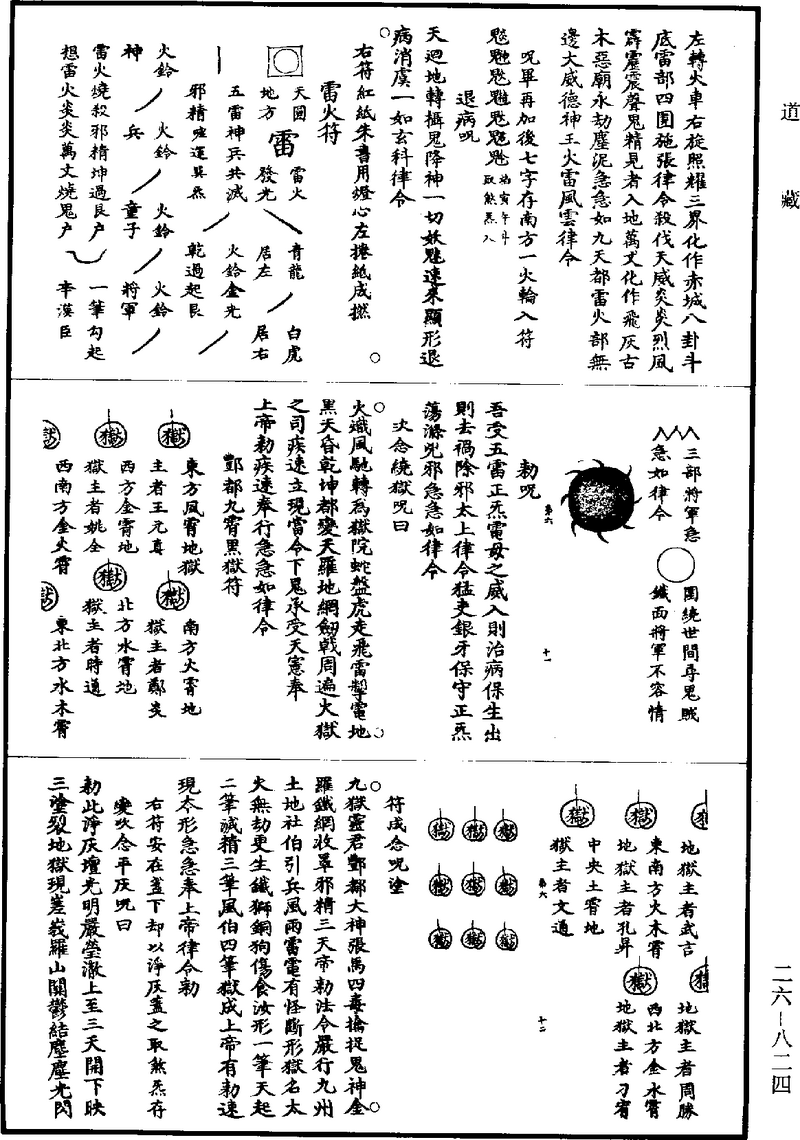 道藏
左轉火車右旋照耀三界化作赤城八卦斗
底雷部四圍施張律令殺伐天威炎炎烈風
霹靂震聲鬼精見者入地萬丈化作飛灰古
木惡廟永劫塵泥急急如九天都雷火部無
邊大威德神王火雷風雲律令
呪畢再加後七字存南方一火輪入符
退病呪
天迴地轉攝鬼降神一切妖魅速來顯形退
病消虞一如玄科律令
右符紅紙朱書用燈心左捲紙成撚
雷火符
天圓
地方
雷
雷火
發光
青龍
居左
白虎
居右
五雷神兵共滅
火鈴金光
邪精
乾過起艮
火鈴
火鈴
火鈴
火鈴
神
兵
童子
將軍
雷火燒殺邪精坤過艮户
一筆勾起
想雷火炎炎萬丈燒鬼户
李漢臣
三部將軍急
急如律令
圍繞世間尋鬼賊
鐵面將軍不容情
第六
十一
勅呪
吾受五雷正炁電母之威入則治病保生出
則去禍除邪太上律令猛吏銀牙保守正炁
蕩滌兇邪急急如律令
次念繞獄呪曰
火熾風馳轉為獄院蛇盤虎走飛雷掣電地
黑天昏乾坤都變天羅地網劒戟周遍火獄
之司疾速立現當令下鬼承受天憲奉
上帝勅疾速奉行急急如律令
酆都九霄黑獄符
獄
東方風霄地獄
主者王元真
獄
南方火霄地
獄主者鄭炎
獄
西方金霄地
獄主者姚全
獄
北方水霄地
獄主者時通
獄
西南方金火霄
獄
東北方水木霄
獄
地獄主者武吉
獄
地獄主者周勝
獄
東南方火木霄
地獄主者孔昇
獄
西北方金水霄
地獄主者刁宥
獄
中央土霄地
獄主者文通
第六
十二
獄獄獄
獄獄獄
獄獄獄
符成念呪塗
九獄靈君酆都大神張馬四毒擒捉鬼神金
羅鐵網收罩邪精三天帝勅法令嚴行九州
土地社伯引兵風雨雷電有怪斷形獄名太
火無劫更生鐵獅銅狗傷食汝形一筆天起
二筆滅精三筆風伯四筆獄成上帝有勅速
現本形急急奉上帝律令勅
右符安在盖下却以淨灰盖之取煞炁存
變吹念平灰呪曰
勅此淨灰壇光明嚴瑩澈上至三天開下映
三塗裂地獄現嵳峩羅山闌鬱結塵塵光閃
二六—八二四